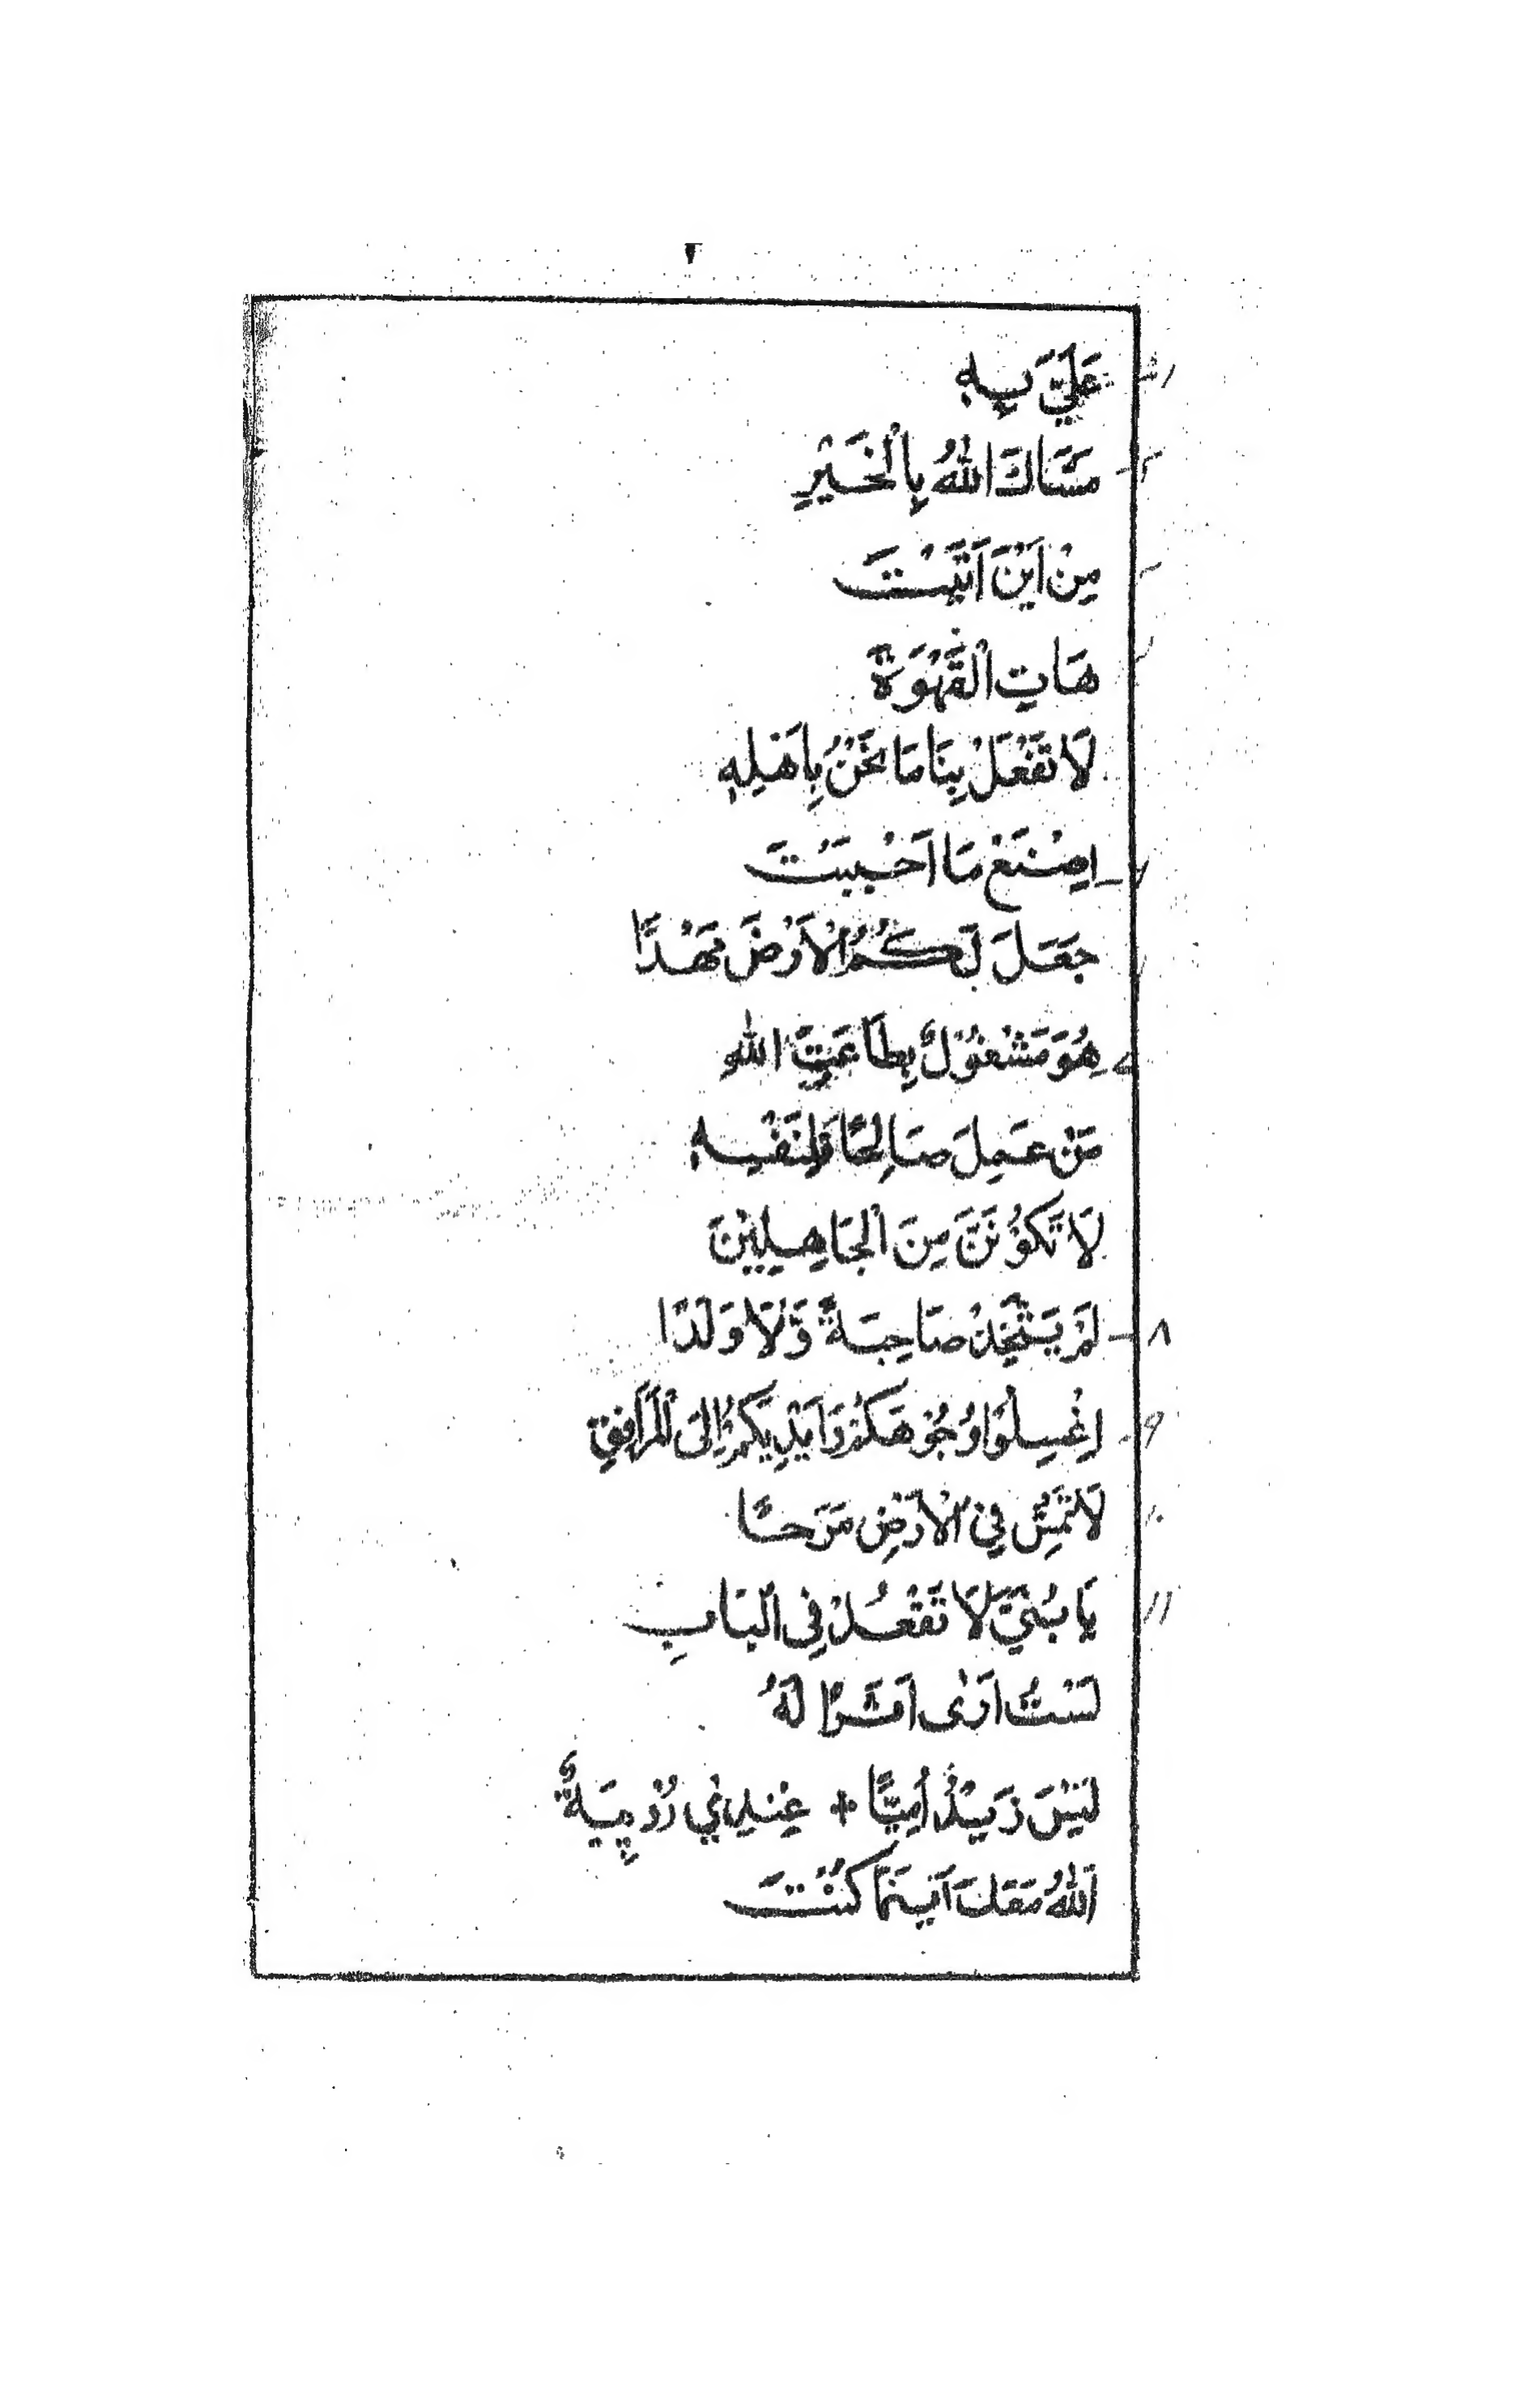 ٢
عَلَيَّ بِهٖ
مَسَّاكَ اللّٰهُ بِالْخَيْرِ
مِنْ اَيْنَ اَتَيْتَ
هَاتِ الْقَهْوَةَ
لَا تَفْعَلْ بِنَا مَا نَحْنُ بِاَهْلِهٖ
اِصْنَعْ مَا اَحْبَبْتَ
جَعَلَ لَكُمُ الْاَرْضَ مَهْدًا
هُوَ مَشْغُوْلٌ بِطَاعَةِ اللّٰهِ
مَنْ عَمِلَ صَالِحًا فَلِنَفْسِهٖ
لَا تَكُوْنَنَّ مِنَ الْجَاهِلِيْنَ
٨ - لَمْ يَتَّخِذْ صَاحِبَةً وَّلَا وَلَدًا
٩ - اِغْسِلُوْا وُجُوْهَكُمْ وَاَيْدِيَكُمْ اِلَى الْمَرَافِقِ
١٠ لَا تَمْشِ فِي الْاَرْضِ مَرَحًا
١١ يَا بُنَيَّ لَا تَقْعُدْ فِي الْبَابِ
لَسْتُ اَرٰى اَثَرًا لَهُ
لَيْسَ زَيْدٌ اُمِّيًّا + عِنْدِيْ رُوْپِيَةٌ
اَللّٰهُ مَعَكَ اَيْنَمَا كُنْتَ